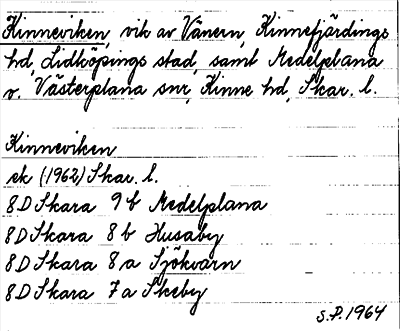 Kinneviken, vik av Vänern, Kinnefjärdings
hd, Lidköpings stad, samt Medelplana
o. Västerplana snr, Kinne hd, Skar. l.
Kinneviken
ek (1962) Skar. l.
8D Skara 9 b Medelplana
8D Skara 8 b Husaby
8D Skara 8 a Sjökvarn
8D Skara 7 a Skeby
S.P. 1964